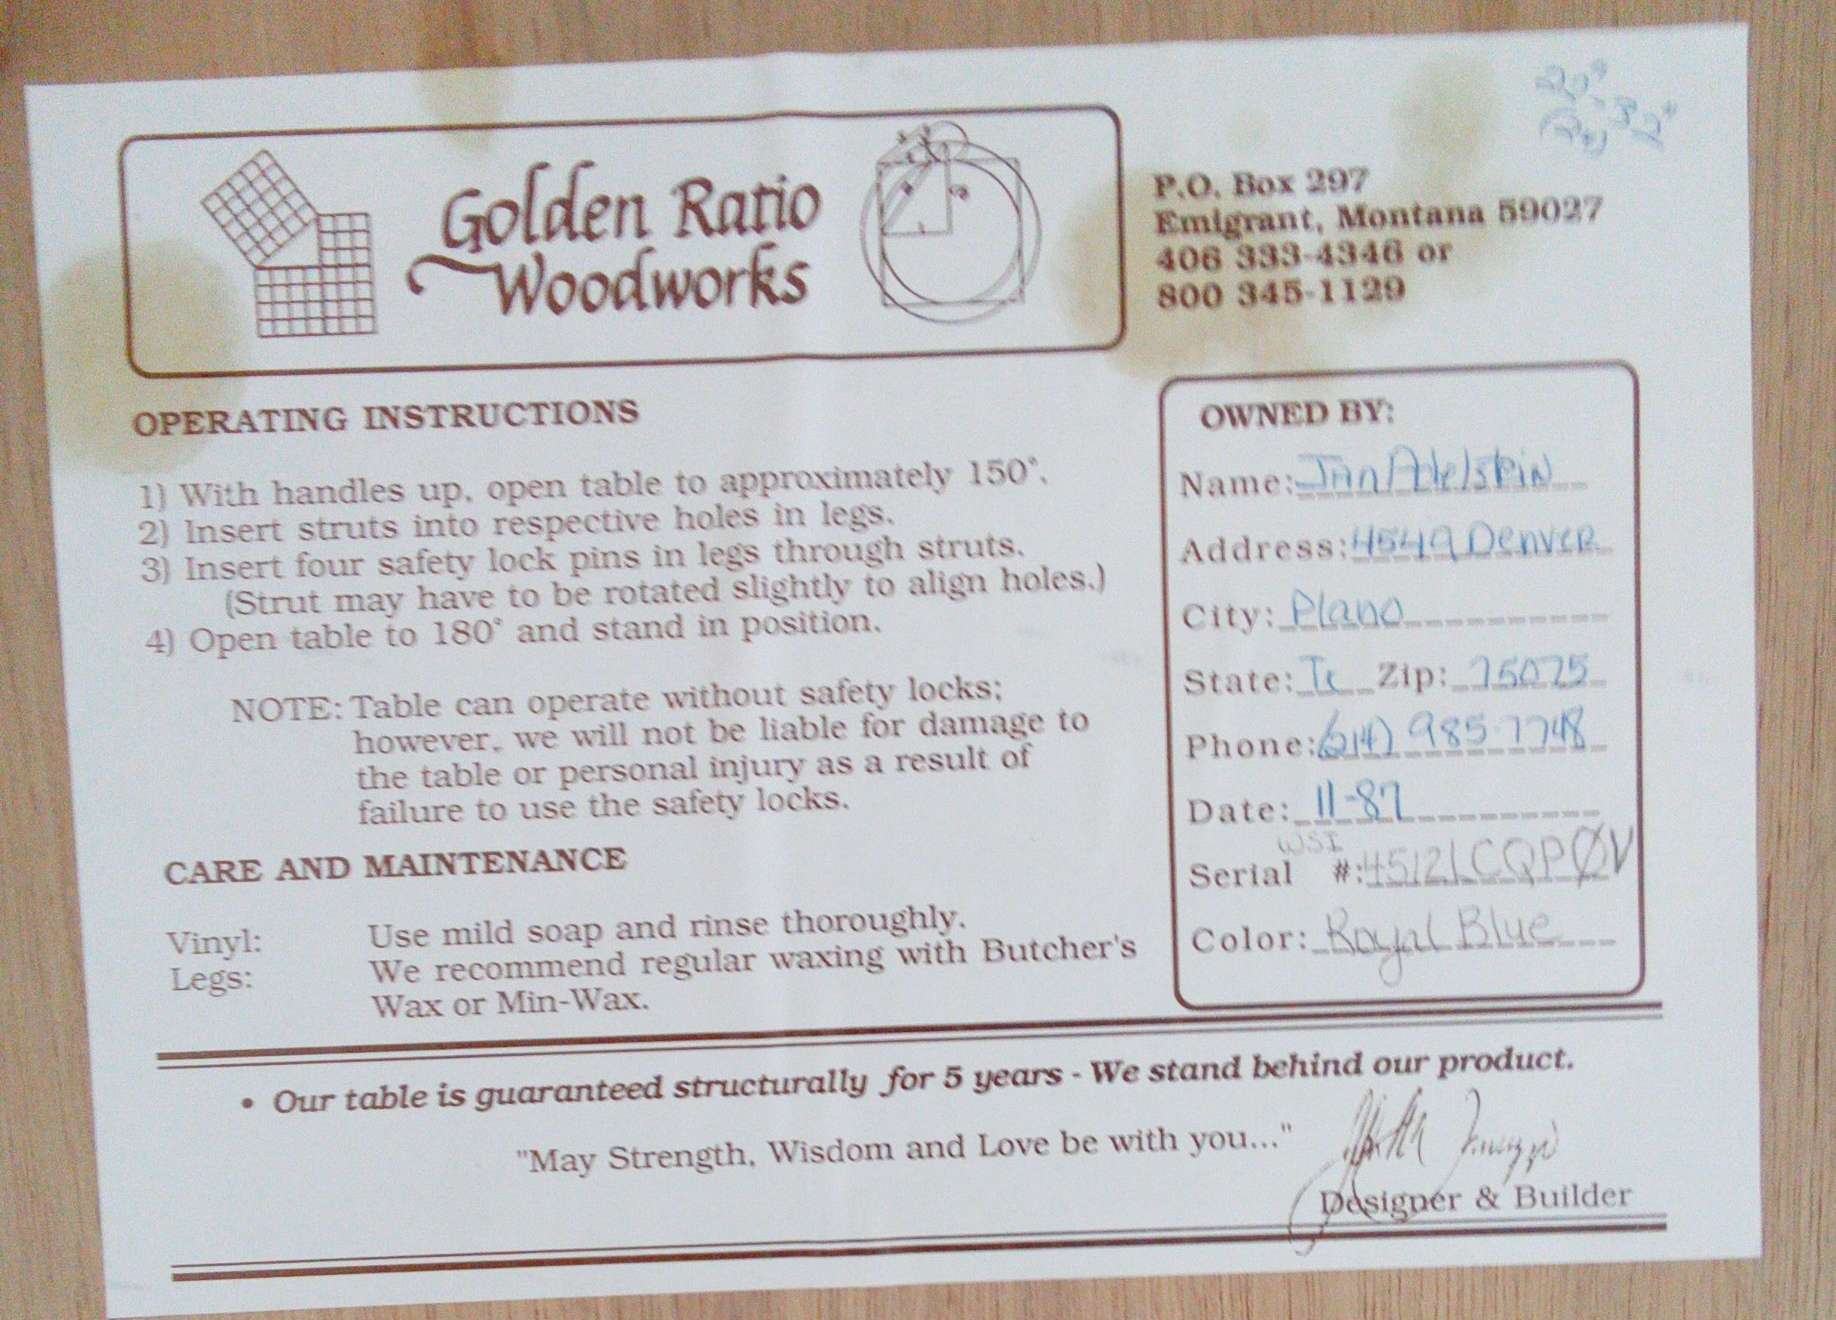 Golden Ratio
Woodworks
P.O. Box 297
Emigrant, Montana 59027
406 333-4346 or
800 345-1129
OPERATING INSTRUCTIONS
1) With handles up, open table to approximately 150°.
2) Insert struts into respective holes in legs.
3) Insert four safety lock pins in legs through struts.
(Strut may have to be rotated slightly to align holes.)
4) Open table to 180° and stand in position.
NOTE: Table can operate without safety locks;
however, we will not be liable for damage to
the table or personal injury as a result of
failure to use the safety locks.
CARE AND MAINTENANCE
Vinyl: Use mild soap and rinse thoroughly.
Legs: We recommend regular waxing with Butcher's
Wax or Min-Wax.
OWNED BY:
Name: Jan Adelstein
Address: 4549 Denver
City: Plano
State: Tx Zip: 75075
Phone: (214) 985-7748
Date: 11-87
WSI
Serial #: 4512LCQPØV
Color: Royal Blue
• Our table is guaranteed structurally for 5 years - We stand behind our product.
"May Strength, Wisdom and Love be with you..."
Designer & Builder